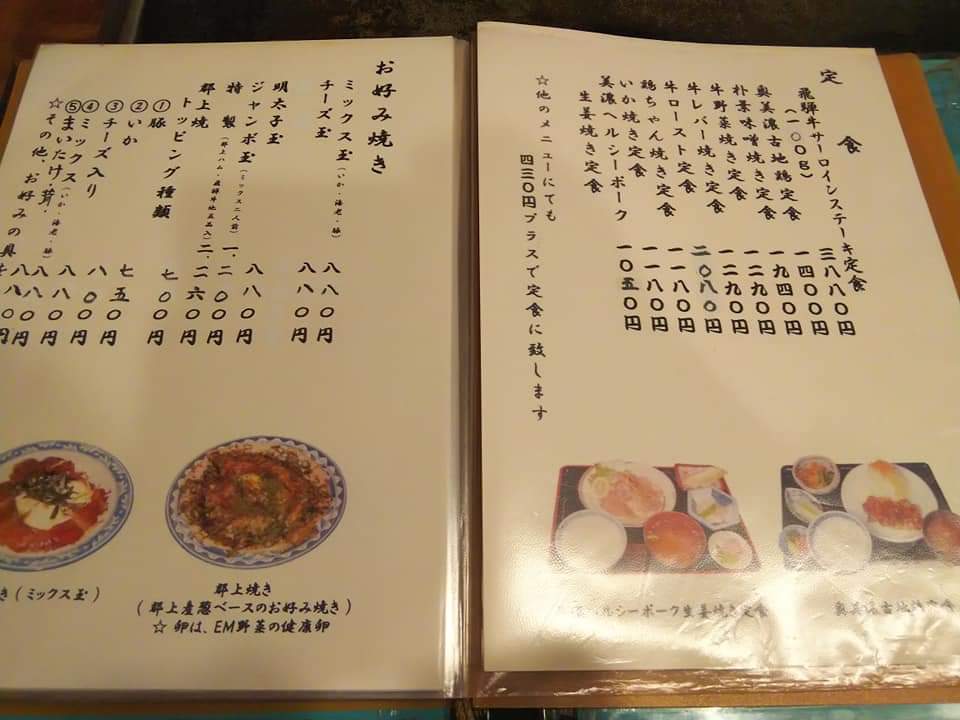 定食
飛騨牛サーロインステーキ定食 三八八〇円
（一〇〇g）
奥美濃古地鶏定食 一四〇〇円
朴葉味噌焼き定食 一九四〇円
牛野菜焼き定食 一二九〇円
牛レバー焼き定食 一二九〇円
牛ロースト定食 二〇八〇円
鶏ちゃん焼き定食 一一八〇円
いか焼き定食 一一八〇円
美濃ヘルシーポーク
生姜焼き定食 一〇五〇円
☆他のメニューにても
四三〇円プラスで定食に致します
ルシーポーク生姜焼き定食
奥美濃古地鶏定食
お好み焼き
ミックス玉（いか・海老・豚） 八八〇円
チーズ玉 八八〇円
明太子玉 八八〇円
ジャンボ玉（ミックス二人前） 一、二〇〇円
特製
郡上焼 二、二六〇円
トッピング種類
①豚 七〇〇円
②いか 七五〇円
③チーズ入り 八〇〇円
④ミックス（いか・海老・豚） 八八〇円
⑤まいたけ茸 八八〇円
☆その他、お好みの具
き（ミックス玉）
郡上焼き
（郡上産葱ベースのお好み焼き）
☆ 卵は、EM野菜の健康卵